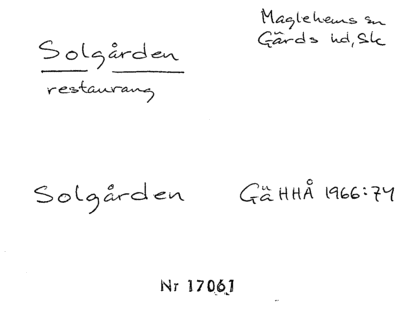 Maglehems sn
Gärds hd, Sk
Solgården
restaurang
Solgården GäHHÅ 1966:74
Nr 17061